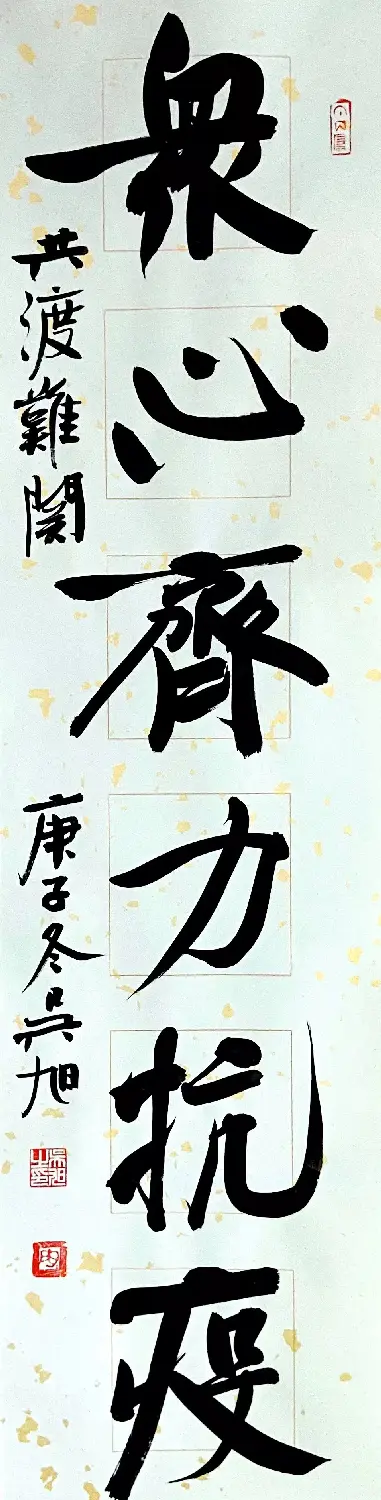 衆心齊力抗疫
共渡難関
庚子冬吳旭